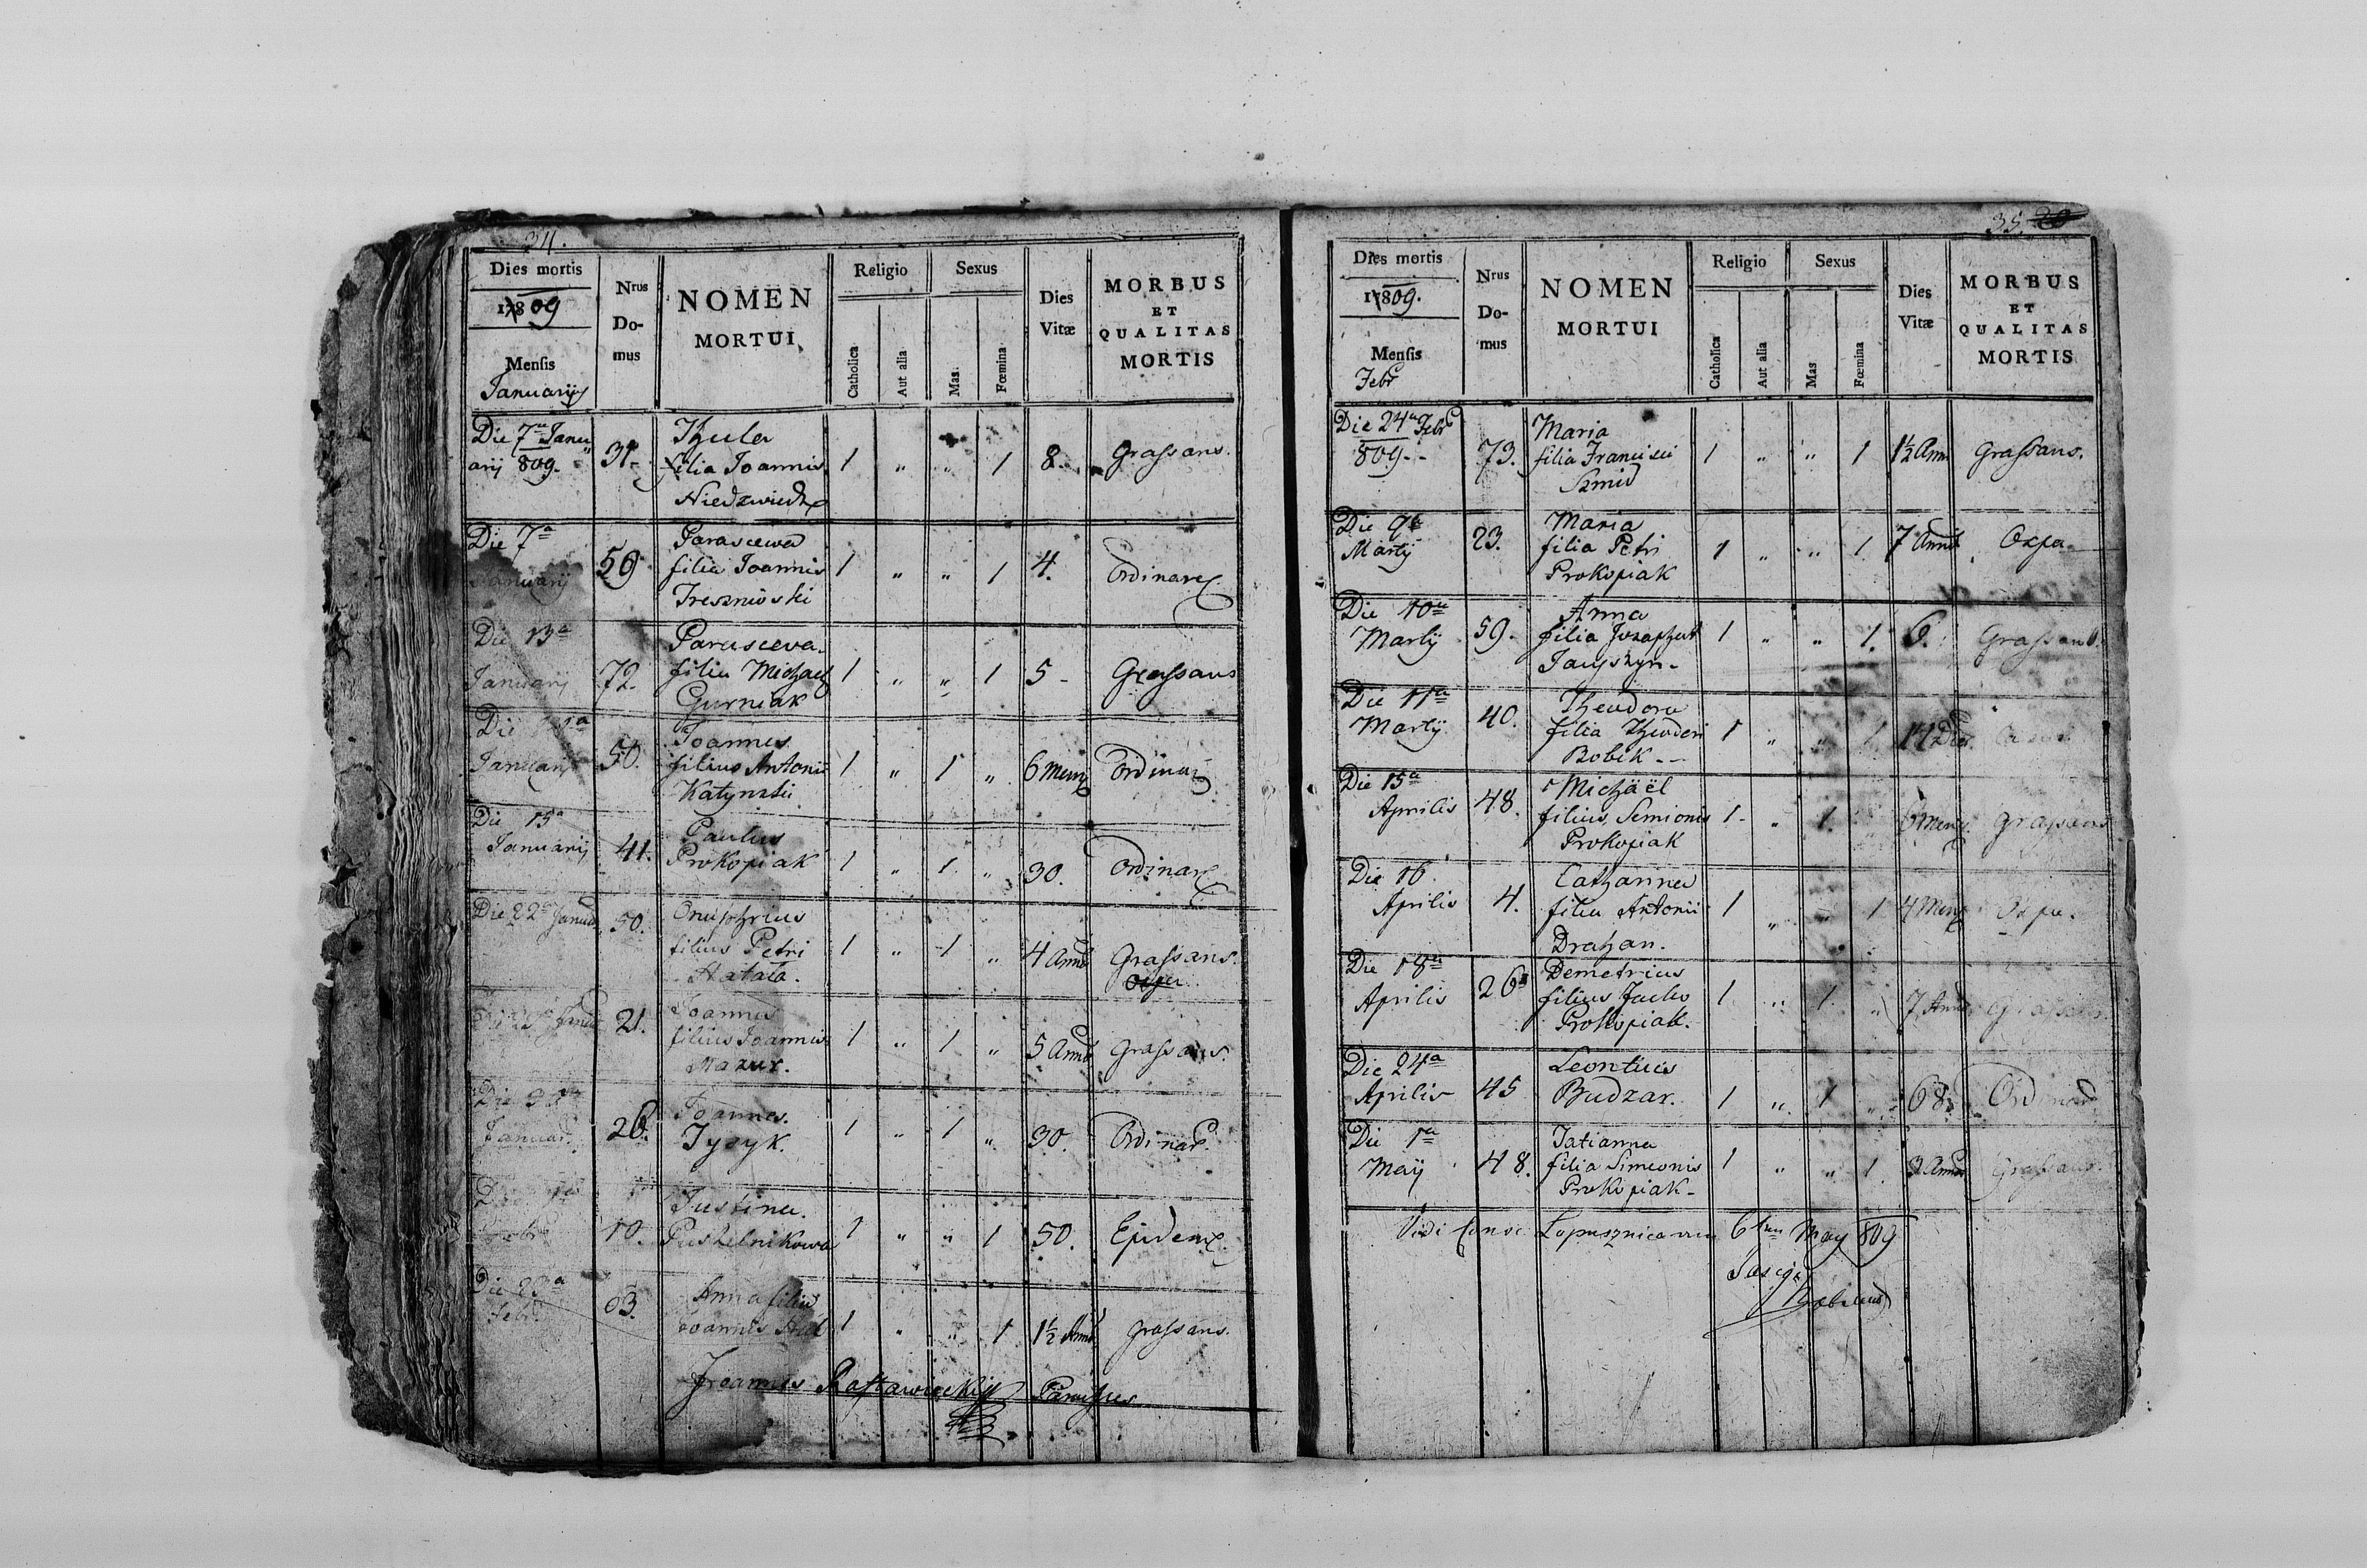 34.
Dies mortis
1809
Mensis
Januarij
Nrus
Do-
mus
NOMEN
MORTUI
Religio
Catholica
Aut alia
Sexus
Mas
Fœmina
Dies
Vitæ
MORBUS
ET
QUALITAS
MORTIS
Die 7a Janu
arij 809.
31.
Thecla
filia Joannis
Niedzwiedz
1 " " 1 8. Grassans.
Die 7a
Januarij
59
Parascewa
filia Joannis
1 " " 1 4. Ordinar
Die 13a
Januarij
72.
Parasceva
filia Michael
Gurniak
1 " " 1 5 - Grassans
Die
Januarij
50.
Joannes
filius Antonii
Katynski
1 " 1 " 6 Mens Ordinar
Die 15a
Januarij
41.
Paulus
Prokopiak
1 " 1 " 30. Ordinar
Die 22a Januar
50.
Onuphrius
filius Petri
Hatala.
1 " 1 " 4 Anno Grassans.
Ospa
21.
Joannes
filius Joannis
Mazur.
1 " 1 " 5 Anno Grassans.
Die
Januar.
26.
Joannes
Jyzyk.
1 " 1 " 30. Ordinar.
Die
Febr
10.
Justina
Pustelnikowa
1 " " 1 50. Epidem
Die 23a
Febr.
63.
Anna filia
Joannis
1 " " 1 1½ Anno Grassans.
Joannes Parochus
35. 20
Dies mortis
1809.
Mensis
Febr
Nrus
Do-
mus
NOMEN
MORTUI
Religio
Catholica
Aut alia
Sexus
Mas
Fœmina
Dies
Vitæ
MORBUS
ET
QUALITAS
MORTIS
Die 24a Febr
809.-
73.
Maria
filia Francisci
Szmid
1 " " 1 1½ Ann Grassans.
Die 9a
Martij
23.
Maria
filia Petri
Prokopiak
1 " " 1 7 Anno Ospa
Die 10a
Martij
59.
Anna
filia Jozaphat
1 " " 1. 6. Grassans.
Die 11a
Martij
40.
Theodora
filia Theodori
Bobik.-
1 " " 1
Die 15a
Aprilis
48.
Michaël
filius Semionis
Prokopiak
1 - " 1. " 6 Mens Grassans
Die 16
Aprilis
4.
Catharina
filia Antonii
Drahan.
1 " " 1 4 Mens Ospa.
Die 18a
Aprilis
26
Demetrius
filius Jacko
Prokopiak.
1 " 1 " 7 Anno Grassans
Die 24a
Aprilis
45
Leontius
Budzar.
1 " 1 " 68. Ordinar
Die 1a
Maij
48.
Tatianna
filia Simeonis
Prokopiak-
1 " " 1. 3 Anno Grassans.
Vidi Lopusznicam 6 May 809